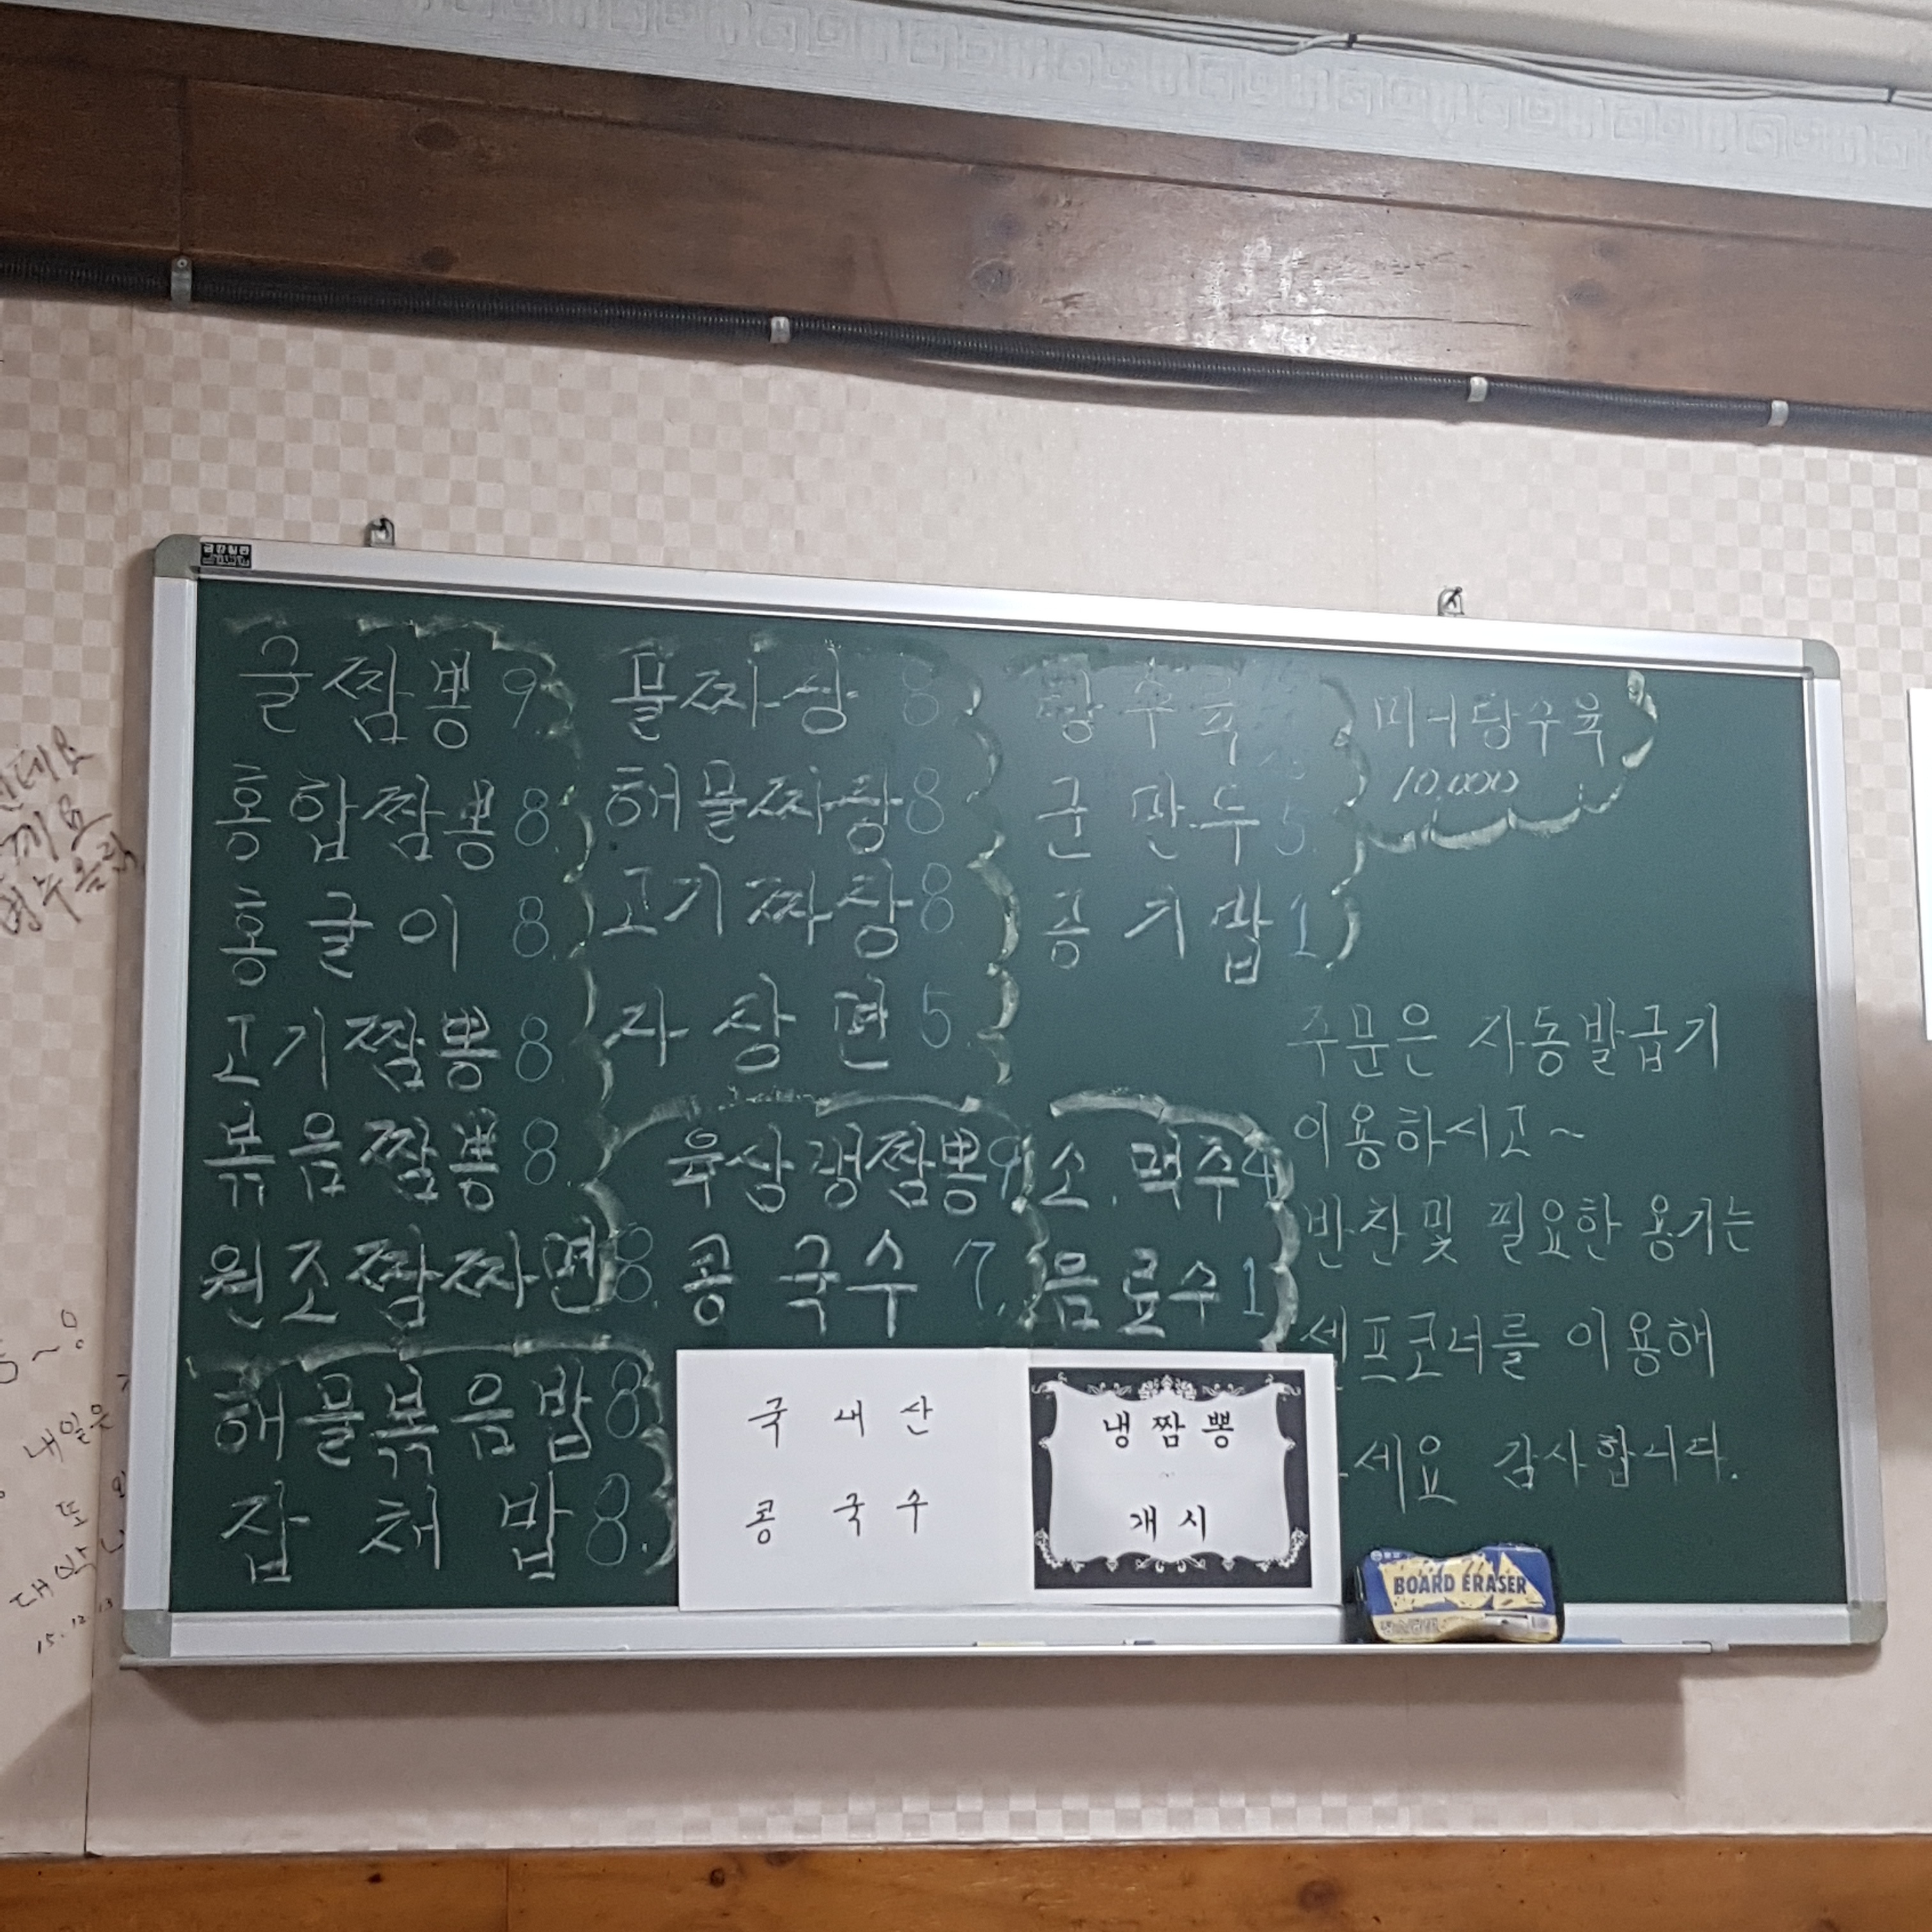 굴짬뽕 9
홍합짬뽕 8.
홍굴이 8.
고기짬뽕 8.
볶음짬뽕 8.
원조짬짜면 8.
해물볶음밥 8.
잡채밥 8.
물짜장 8
해물짜장 8
고기짜장 8
자장면 5.
육상갱짬뽕 9
콩국수 7.
탕수육
군만두 5.
공기밥 1
소.맥주 4
음료수 1
미니탕수육
10,000
주문은 자동발급기
이용하시고~
반찬및 필요한 용기는
셀프코너를 이용해
세요 감사합니다.
국내산
콩국수
냉짬뽕
개시
BOARD ERASER
내일은
또
대박
15.12.13